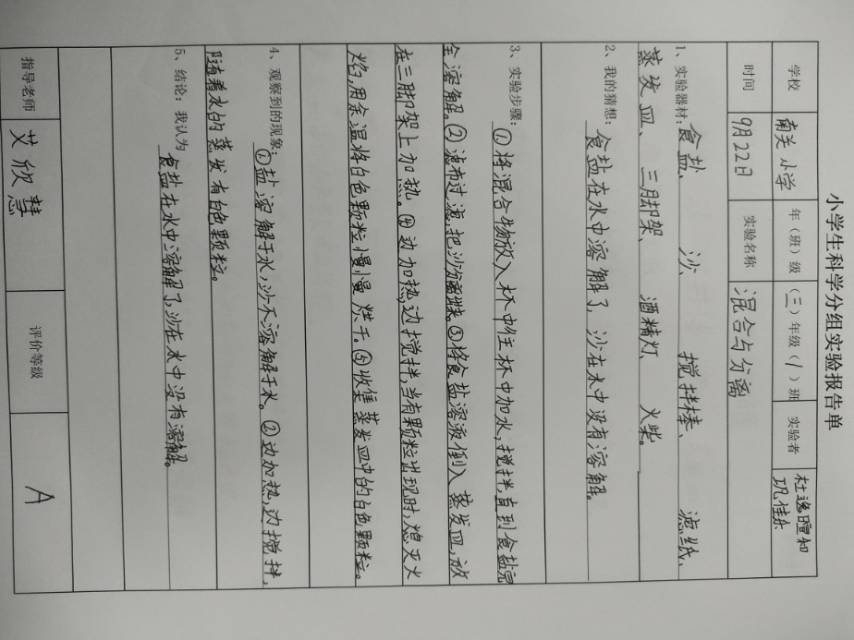 小学生科学分组实验报告单
学校 南关小学 年（班）级 （三）年级（1）班 实验者 杜逸瞳和 巩佳乐
时间 9月22日 实验名称 混合与分离
1、实验器材：食盐、 沙、 搅拌棒、 滤纸、
蒸发皿、三脚却架、 酒精灯、 火柴。
2、我的猜想：
食盐在水中溶解了，沙在水中没有溶解。
3、实验步骤：①将混合物放入杯中往杯中加水，搅拌，直到食盐完
全溶解。②滤布过滤，把沙分离出来。③将食盐溶液倒入蒸发皿，放
在三脚却架上加热。④边加热，边搅拌，当有颗粒出现时，熄灭火
焰，用余温将白色颗粒慢慢烘干。⑤收集蒸发皿中的白色颗粒。
4、观察到的现象：①盐溶解于水，沙不溶解于水。②边加热，边搅拌，
随着水的蒸发有白色颗粒。
5、结论：我认为
食盐在水中溶解了沙在水中没有溶解。
指导老师 艾欣慧 评价等级 A